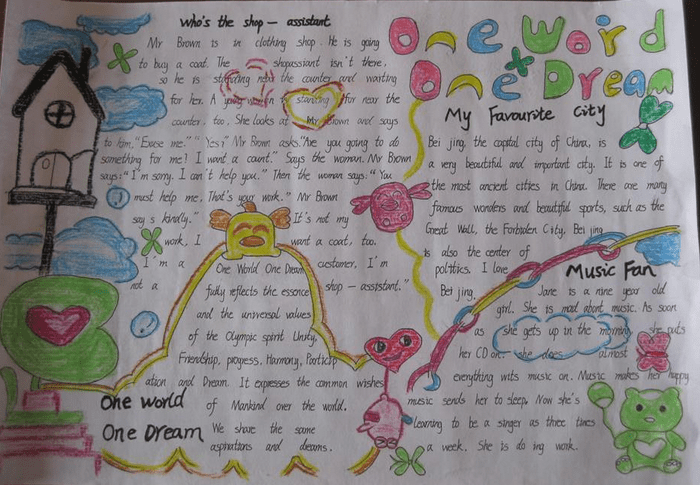 Who's the shop - assistant
Mr Brown is in clothing shop. He is going
to buy a coat. The shopassisant isn't there,
so he is standing near the counter and waiting
for her. A young woman is standing for near the
counter, too. She looks at Mr Brown and says
to him, "Excuse me." "Yes?" Mr Brown asks. "Are you going to do
something for me? I want a count." Says the woman. Mr Brown
says: "I'm sorry. I can't help you." Then the woman says: "You
must help me. That's your work." Mr Brown
say s kindly." It's not my
work, I want a coat, too.
I'm a customer, I'm
not a shop - assistant."
One World
One Dream
My Favourite City
Bei jing, the capital city of China, is
a very beautiful and important city. It is one of
the most ancient cities in China. There are many
famous wonders and beautiful sports, such as the
Great Wall, the Forbiden City. Bei jing
is also the center of
politics. I love
Bei jing.
Music Fan
Jane is a nine year old
girl. She is mad about music. As soon
as she gets up in the morning, she puts
her CD on. she does almost
everything wits music on. Music makes her happy
music sends her to sleep. Now she's
learning to be a singer as three times
a week. She is do ing work.
One World One Dream
fully reflects the essence
and the universal values
of the Olympic spirit Unity,
Friendship, progress, Harmony, Particip
ation and Dream. It expresses the common wishes
of Mankind over the world.
We share the same
aspirations and dreams.
One World
One Dream